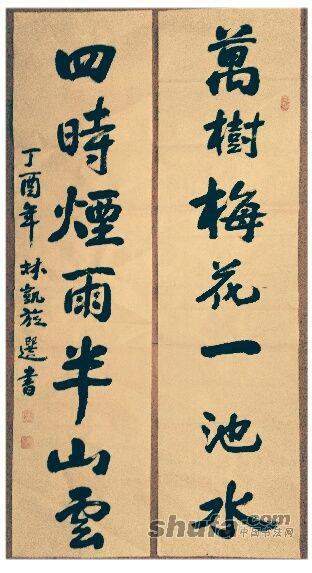 萬樹梅花一池水
四時煙雨半山雲
丁酉年 林凱旋選書
shufa.com
中国书法网